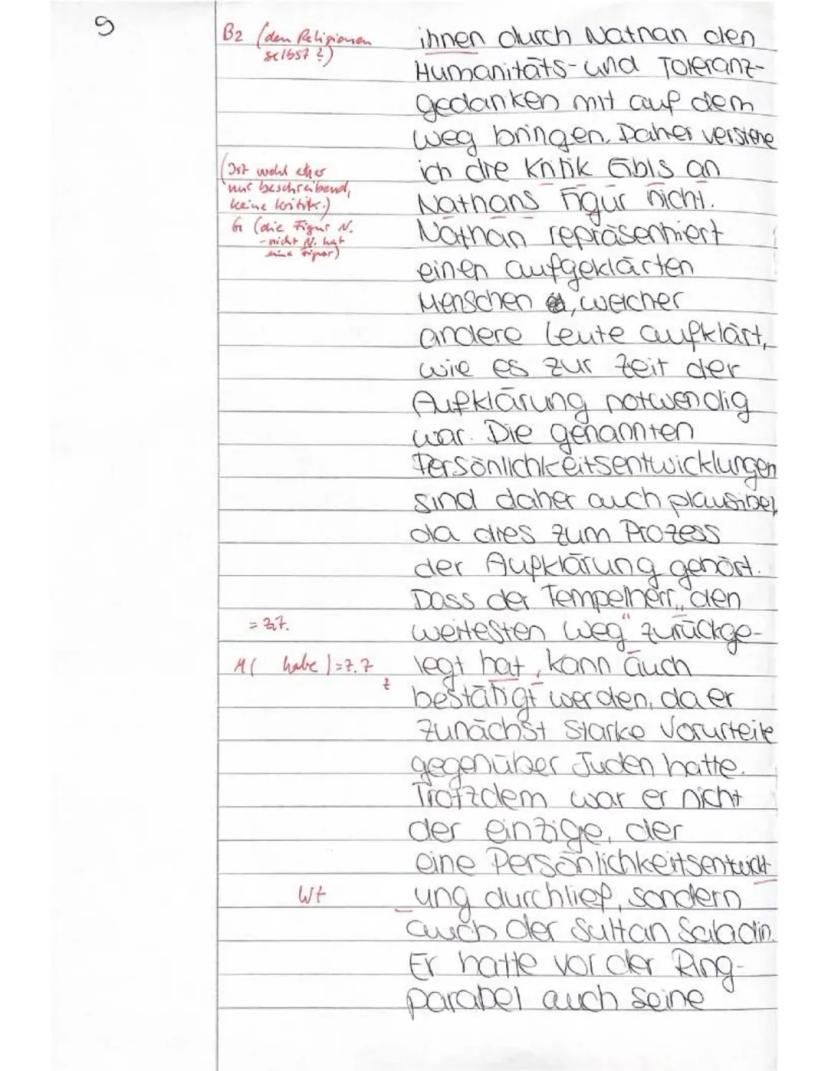 9
B2 (den Religionen
selbst?)
ihnen durch Nathan den
Humanitäts- und Toleranz-
gedanken mit auf dem
Weg bringen. Daher verstehe
(Ist wohl eher
nur beschreibend,
keine Kritik.)
ich die Kritik Gibis an
Nathans Figur nicht.
Gr (die Figur N.
- nicht N. hat
eine Figur)
Nathan repräsentiert
einen aufgeklärten
Menschen, welcher
andere Leute aufklärt,
wie es zur Zeit der
Aufklärung notwendig
war. Die genannten
Persönlichkeitsentwicklungen
sind daher auch plausibel,
da dies zum Prozess
der Aufklärung gehört.
Dass der Tempelherr „den
= Zit.
weitesten Weg" zurückge-
M( habe) = Z.7
z
legt hat, kann auch
bestätigt werden, da er
zunächst starke Vorurteile
gegenüber Juden hatte.
Trotzdem war er nicht
der einzige, der
eine Persönlichkeitsentwickl
Wt
ung durchlief, sondern
auch der Sultan Saladin.
Er hatte vor der Ring-
parabel auch seine